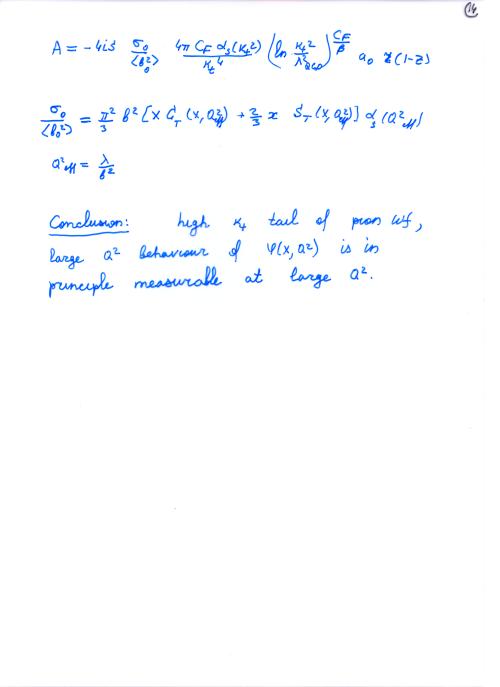 14
A = -4is σ₀/⟨b₀²⟩ 4π C_F α_s(k_t²)/k_t⁴ (ln k_t²/Λ²_QCD)^{C_F/β} a₀ z(1-z)
σ₀/⟨b₀²⟩ = π²/3 b² [x G_T(x,Q²_eff) + 2/3 x S_T(x,Q²_eff)] α_s(Q²_eff)
Q²_eff = λ/b²
Conclusion: high k_t tail of pion wf,
large Q² behaviour of φ(x,Q²) is in
principle measurable at large Q².